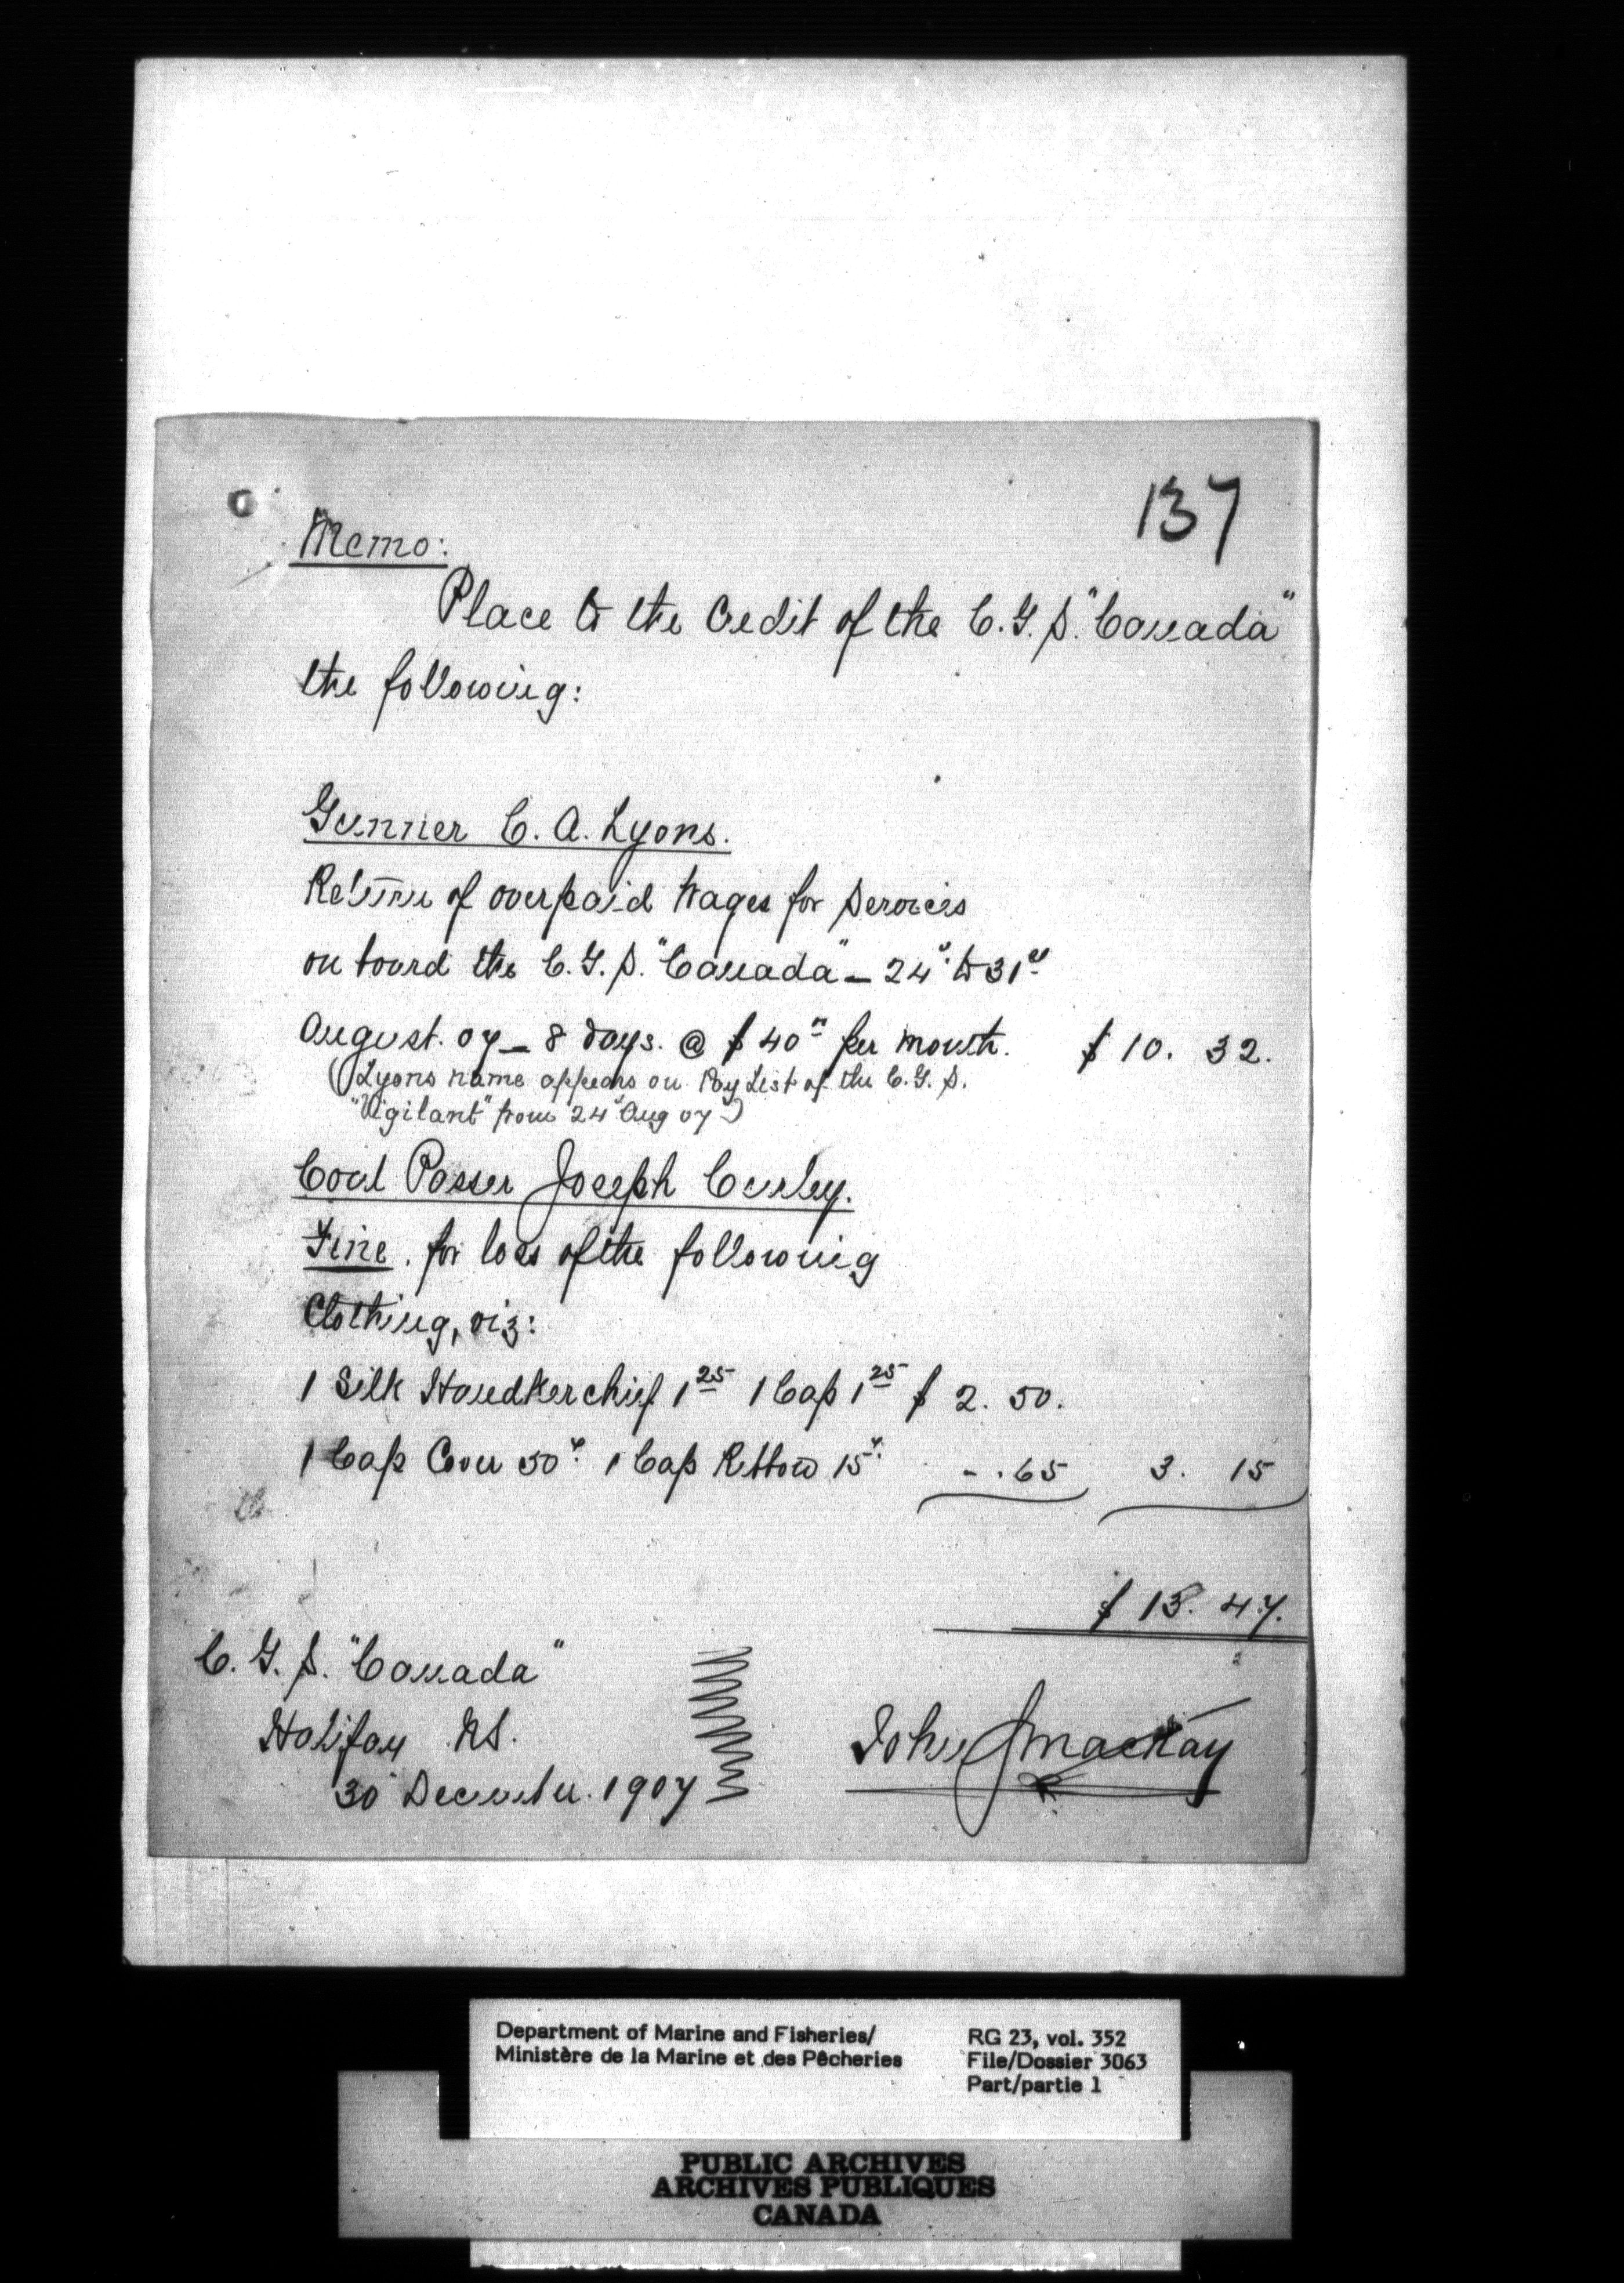 137
Memo:
Place to the Credit of the C. G. S. "Canada"
the following:
Gunner C. A. Lyons.
Return of overpaid Wages for Services
on board the C. G. S. "Canada" - 24" to 31st
August. 07 - 8 days. @ $40 per month. $ 10. 32.
(Lyons name appears on Pay List of the C. G. S.
"Vigilant" from 24" Aug 07)
Coal Passer Joseph Curley.
Fine. for loss of the following
Clothing, viz:
1 Silk Handkerchief 1 25 1 Cap 1 25 $ 2. 50.
1 Cap Cover 50¢. 1 Cap Ribbon 15¢. - .65 3. 15
$ 13. 47.
C. G. S. "Canada"
Halifax NS.
30 December. 1907
John J MacKay
Department of Marine and Fisheries/
Ministère de la Marine et des Pêcheries
RG 23, vol. 352
File/Dossier 3063
Part/partie 1
PUBLIC ARCHIVES
ARCHIVES PUBLIQUES
CANADA